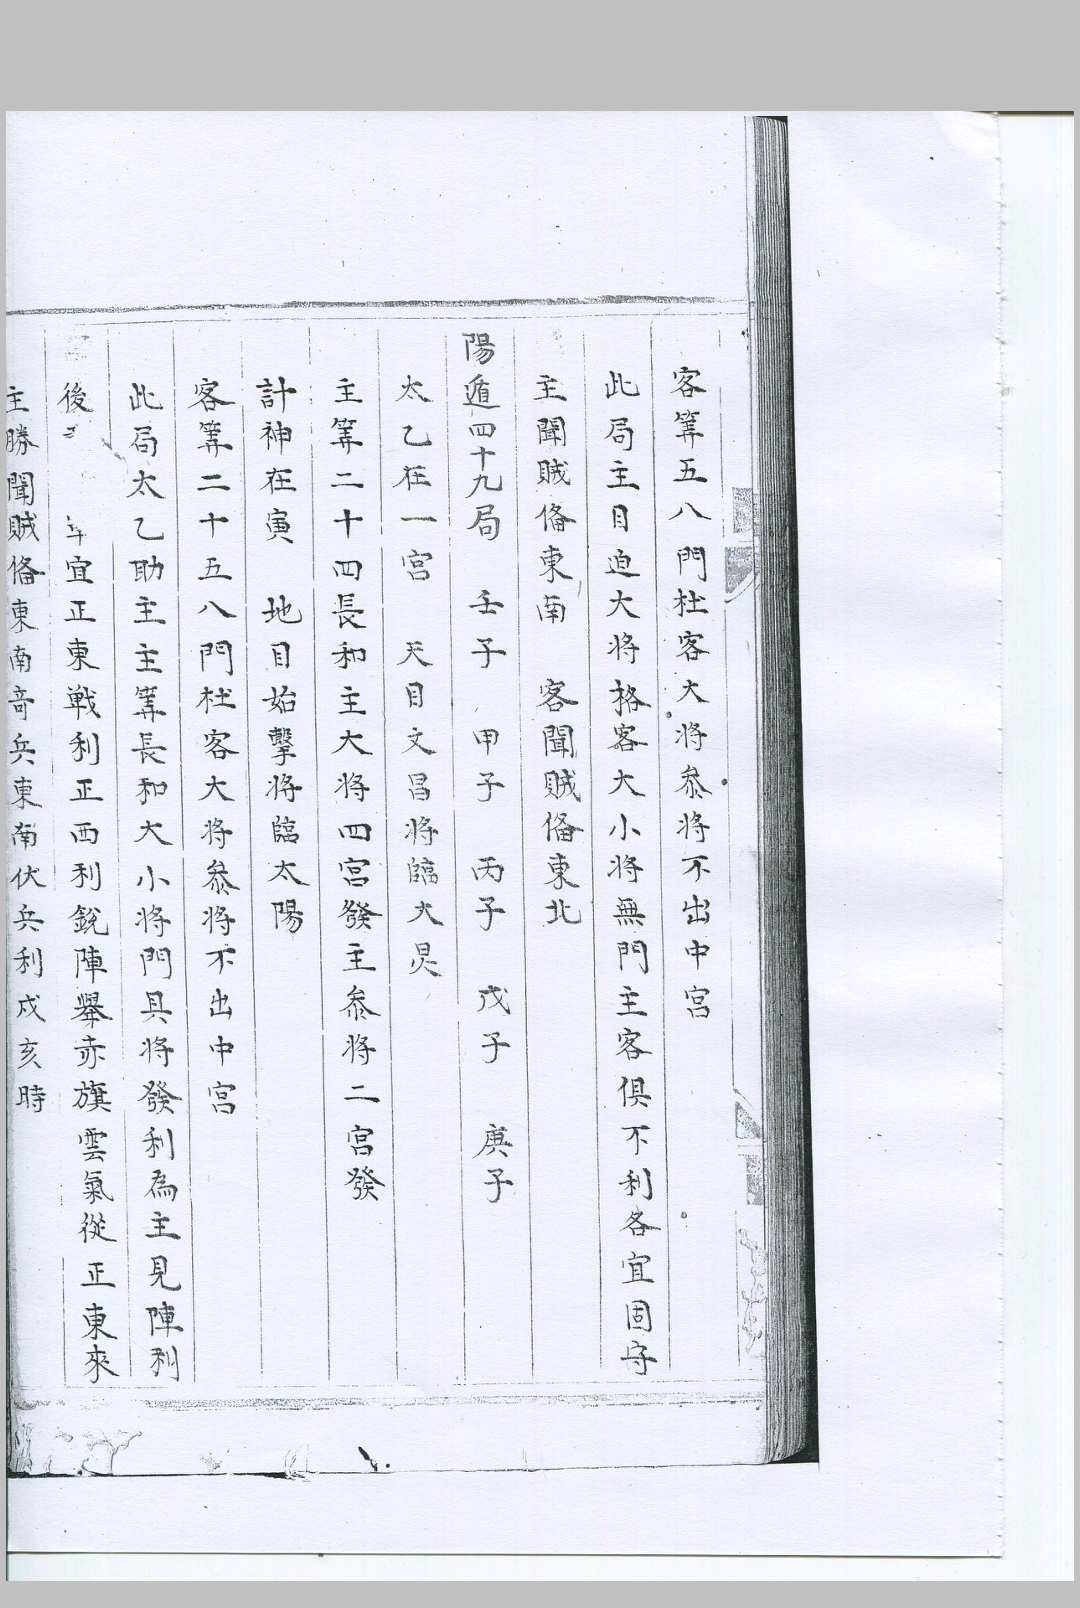 客筭五八門杜客大將叅將不出中宮
此局主目迫大將格客大小將無門主客俱不利各宜固守
主聞賊俻東南 客聞賊俻東北
陽遁四十九局 壬子 甲子 丙子 戊子 庚子
太乙在一宮 天目文昌將臨大炅
主筭二十四長和主大將四宮發主叅將二宮發
計神在寅 地目始擊將臨太陽
客筭二十五八門杜客大將叅將不出中宮
此局太乙助主主筭長和大小將門具將發利為主見陣利
後 宜正東戰利正西利銳陣舉赤旗雲氣從正東來
主勝聞賊俻東南奇兵東南伏兵利戌亥時